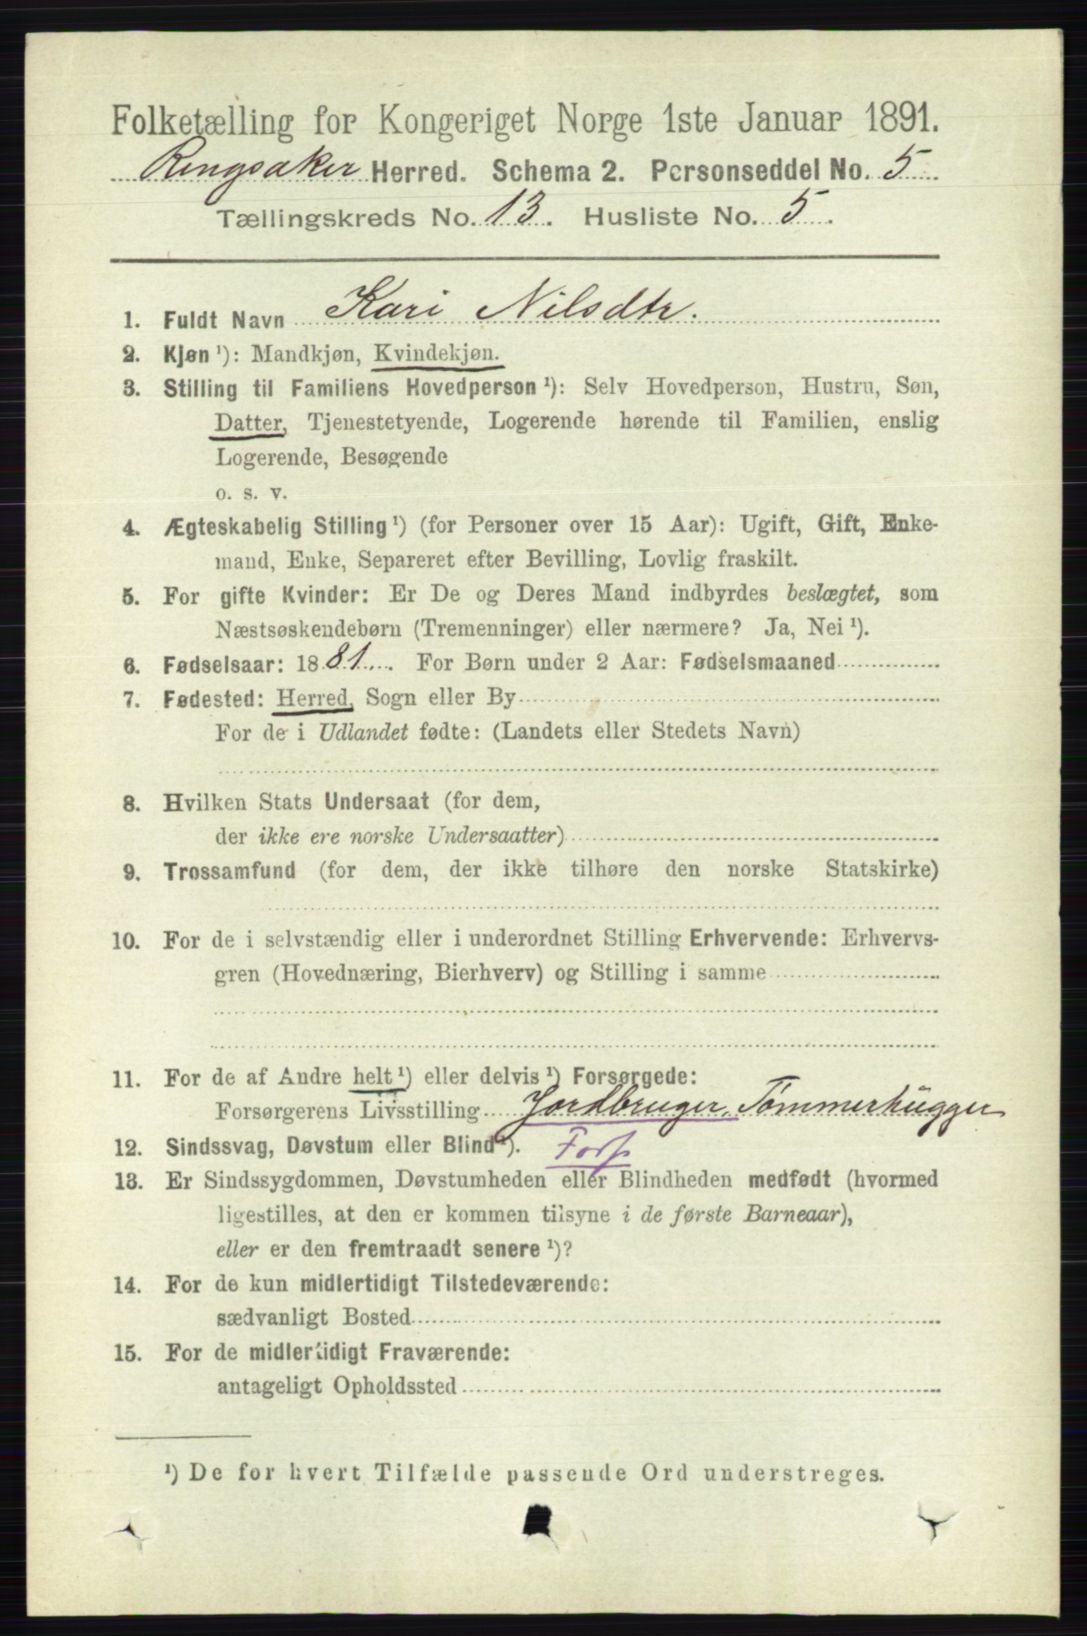 Folketælling for Kongeriget Norge 1ste Januar 1891.
Ringsaker Herred. Schema 2. Personseddel No. 5
Tællingskreds No. 13. Husliste No. 5.
1. Fuldt Navn Kari Nilsdtr.
2. Kjøn ¹): Mandkjøn, Kvindekjøn.
3. Stilling til Familiens Hovedperson ¹): Selv Hovedperson, Hustru, Søn,
Datter, Tjenestetyende, Logerende hørende til Familien, enslig
Logerende, Besøgende
o. s. v.
4. Ægteskabelig Stilling ¹) (for Personer over 15 Aar): Ugift, Gift, Enke-
mand, Enke, Separeret efter Bevilling, Lovlig fraskilt.
5. For gifte Kvinder: Er De og Deres Mand indbyrdes beslægtet, som
Næstsøskendebørn (Tremenninger) eller nærmere? Ja, Nei ¹).
6. Fødselsaar: 1881. For Børn under 2 Aar: Fødselsmaaned
7. Fødested: Herred, Sogn eller By
For de i Udlandet fødte: (Landets eller Stedets Navn)
8. Hvilken Stats Undersaat (for dem,
der ikke ere norske Undersaatter)
9. Trossamfund (for dem, der ikke tilhøre den norske Statskirke)
10. For de i selvstændig eller i underordnet Stilling Erhvervende: Erhvervs-
gren (Hovednæring, Bierhverv) og Stilling i samme
11. For de af Andre helt ¹) eller delvis ¹) Forsørgede:
Forsørgerens Livsstilling Jordbruger, Tømmerhugger
12. Sindssvag, Døvstum eller Blind ¹). Fors
13. Er Sindssygdommen, Døvstumheden eller Blindheden medfødt (hvormed
ligestilles, at den er kommen tilsyne i de første Barneaar),
eller er den fremtraadt senere ¹)?
14. For de kun midlertidigt Tilstedeværende:
sædvanligt Bosted
15. For de midlertidigt Fraværende:
antageligt Opholdssted
¹) De for hvert Tilfælde passende Ord understreges.